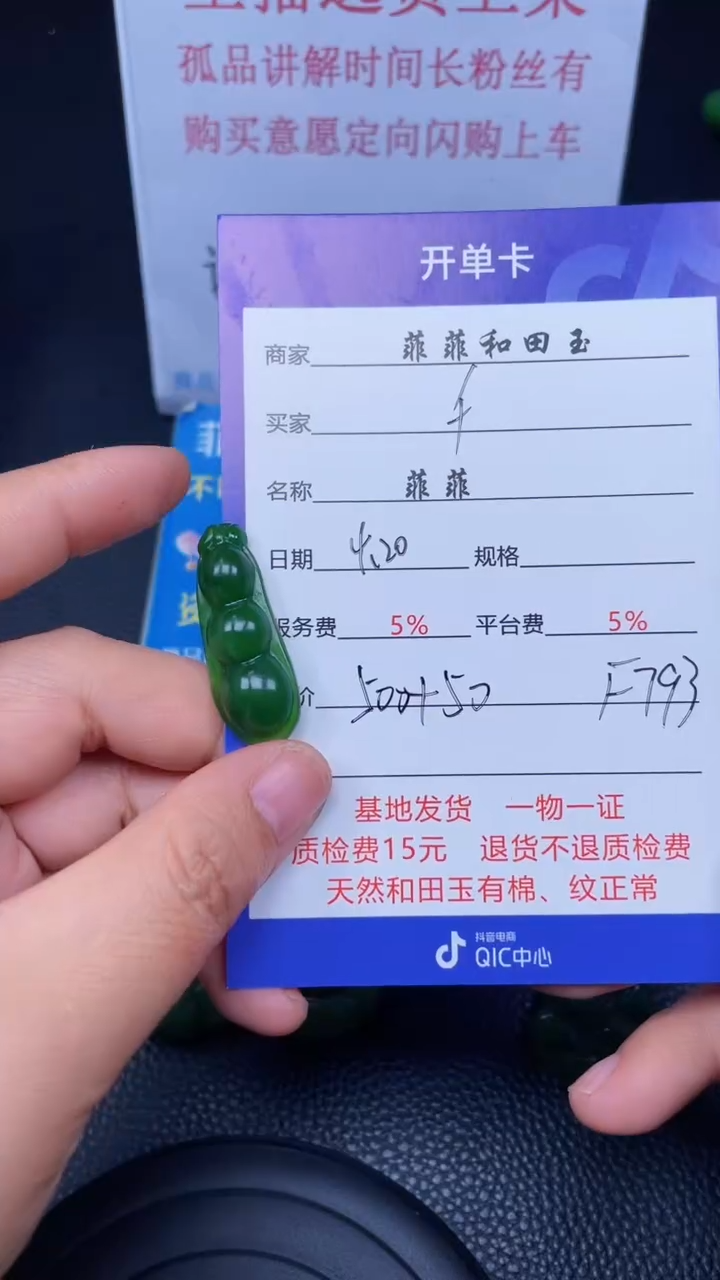 孤品讲解时间长粉丝有
购买意愿定向闪购上车
开单卡
商家 菲菲和田玉
买家
名称 菲菲
日期 4.20 规格
服务费 5% 平台费 5%
价 500+50 F793
基地发货 一物一证
质检费15元 退货不退质检费
天然和田玉有棉、纹正常
抖音电商
QIC中心